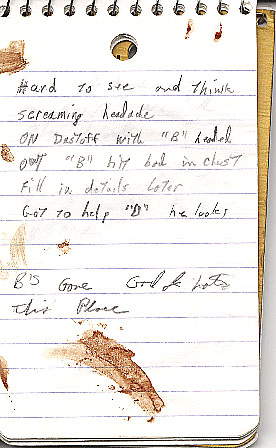 Hard to see and think
screaming headade
ON Dustoff with "B" headed
out "B" hit bad in chest
Fill in details Later
Got to help "B" he looks
B's Gone God &
This Place